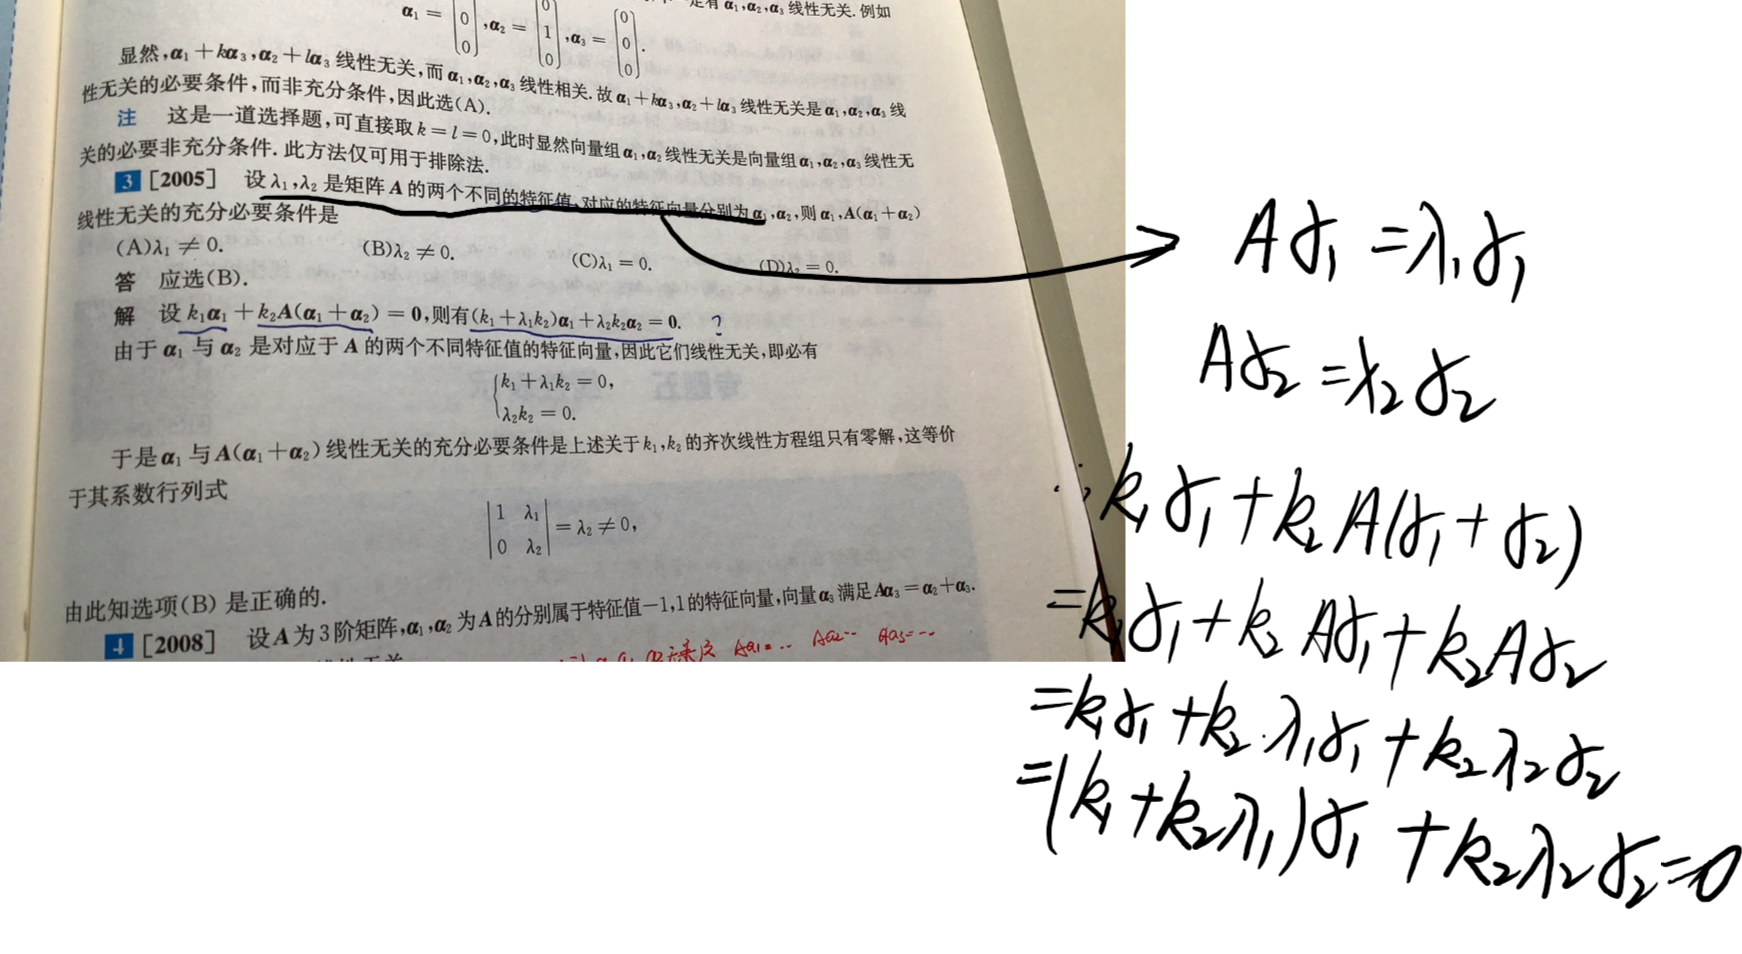 一定有 α₁,α₂,α₃ 线性无关. 例如
α₁ = [0 0], α₂ = [0 1 0], α₃ = [0 0 0].
显然,α₁+kα₃,α₂+lα₃ 线性无关,而 α₁,α₂,α₃ 线性相关. 故 α₁+kα₃,α₂+lα₃ 线性无关是 α₁,α₂,α₃ 线
性无关的必要条件,而非充分条件,因此选(A).
注 这是一道选择题,可直接取 k=l=0,此时显然向量组 α₁,α₂ 线性无关是向量组 α₁,α₂,α₃ 线性无
关的必要非充分条件. 此方法仅可用于排除法.
3 [2005] 设 λ₁,λ₂ 是矩阵 A 的两个不同的特征值,对应的特征向量分别为 α₁,α₂,则 α₁,A(α₁+α₂)
线性无关的充分必要条件是
(A)λ₁≠0. (B)λ₂≠0. (C)λ₁=0. (D)λ₂=0.
答 应选(B).
解 设 k₁α₁+k₂A(α₁+α₂)=0,则有(k₁+λ₁k₂)α₁+λ₂k₂α₂=0. ?
由于 α₁ 与 α₂ 是对应于 A 的两个不同特征值的特征向量,因此它们线性无关,即必有
{k₁+λ₁k₂=0,
λ₂k₂=0.
于是 α₁ 与 A(α₁+α₂)线性无关的充分必要条件是上述关于 k₁,k₂ 的齐次线性方程组只有零解,这等价
于其系数行列式
|1 λ₁|
|0 λ₂| =λ₂≠0,
由此知选项(B)是正确的.
4 [2008] 设 A 为 3 阶矩阵,α₁,α₂ 为 A 的分别属于特征值 −1,1 的特征向量,向量 α₃ 满足 Aα₃=α₂+α₃.
Aα₁=… Aα₂… Aα₃=…
Aγ₁=λ₁γ₁
Aγ₂=λ₂γ₂
∴k₁γ₁+k₂A(γ₁+γ₂)
=k₁γ₁+k₂Aγ₁+k₂Aγ₂
=k₁γ₁+k₂·λ₁γ₁+k₂λ₂γ₂
=(k₁+k₂λ₁)γ₁+k₂λ₂γ₂=0